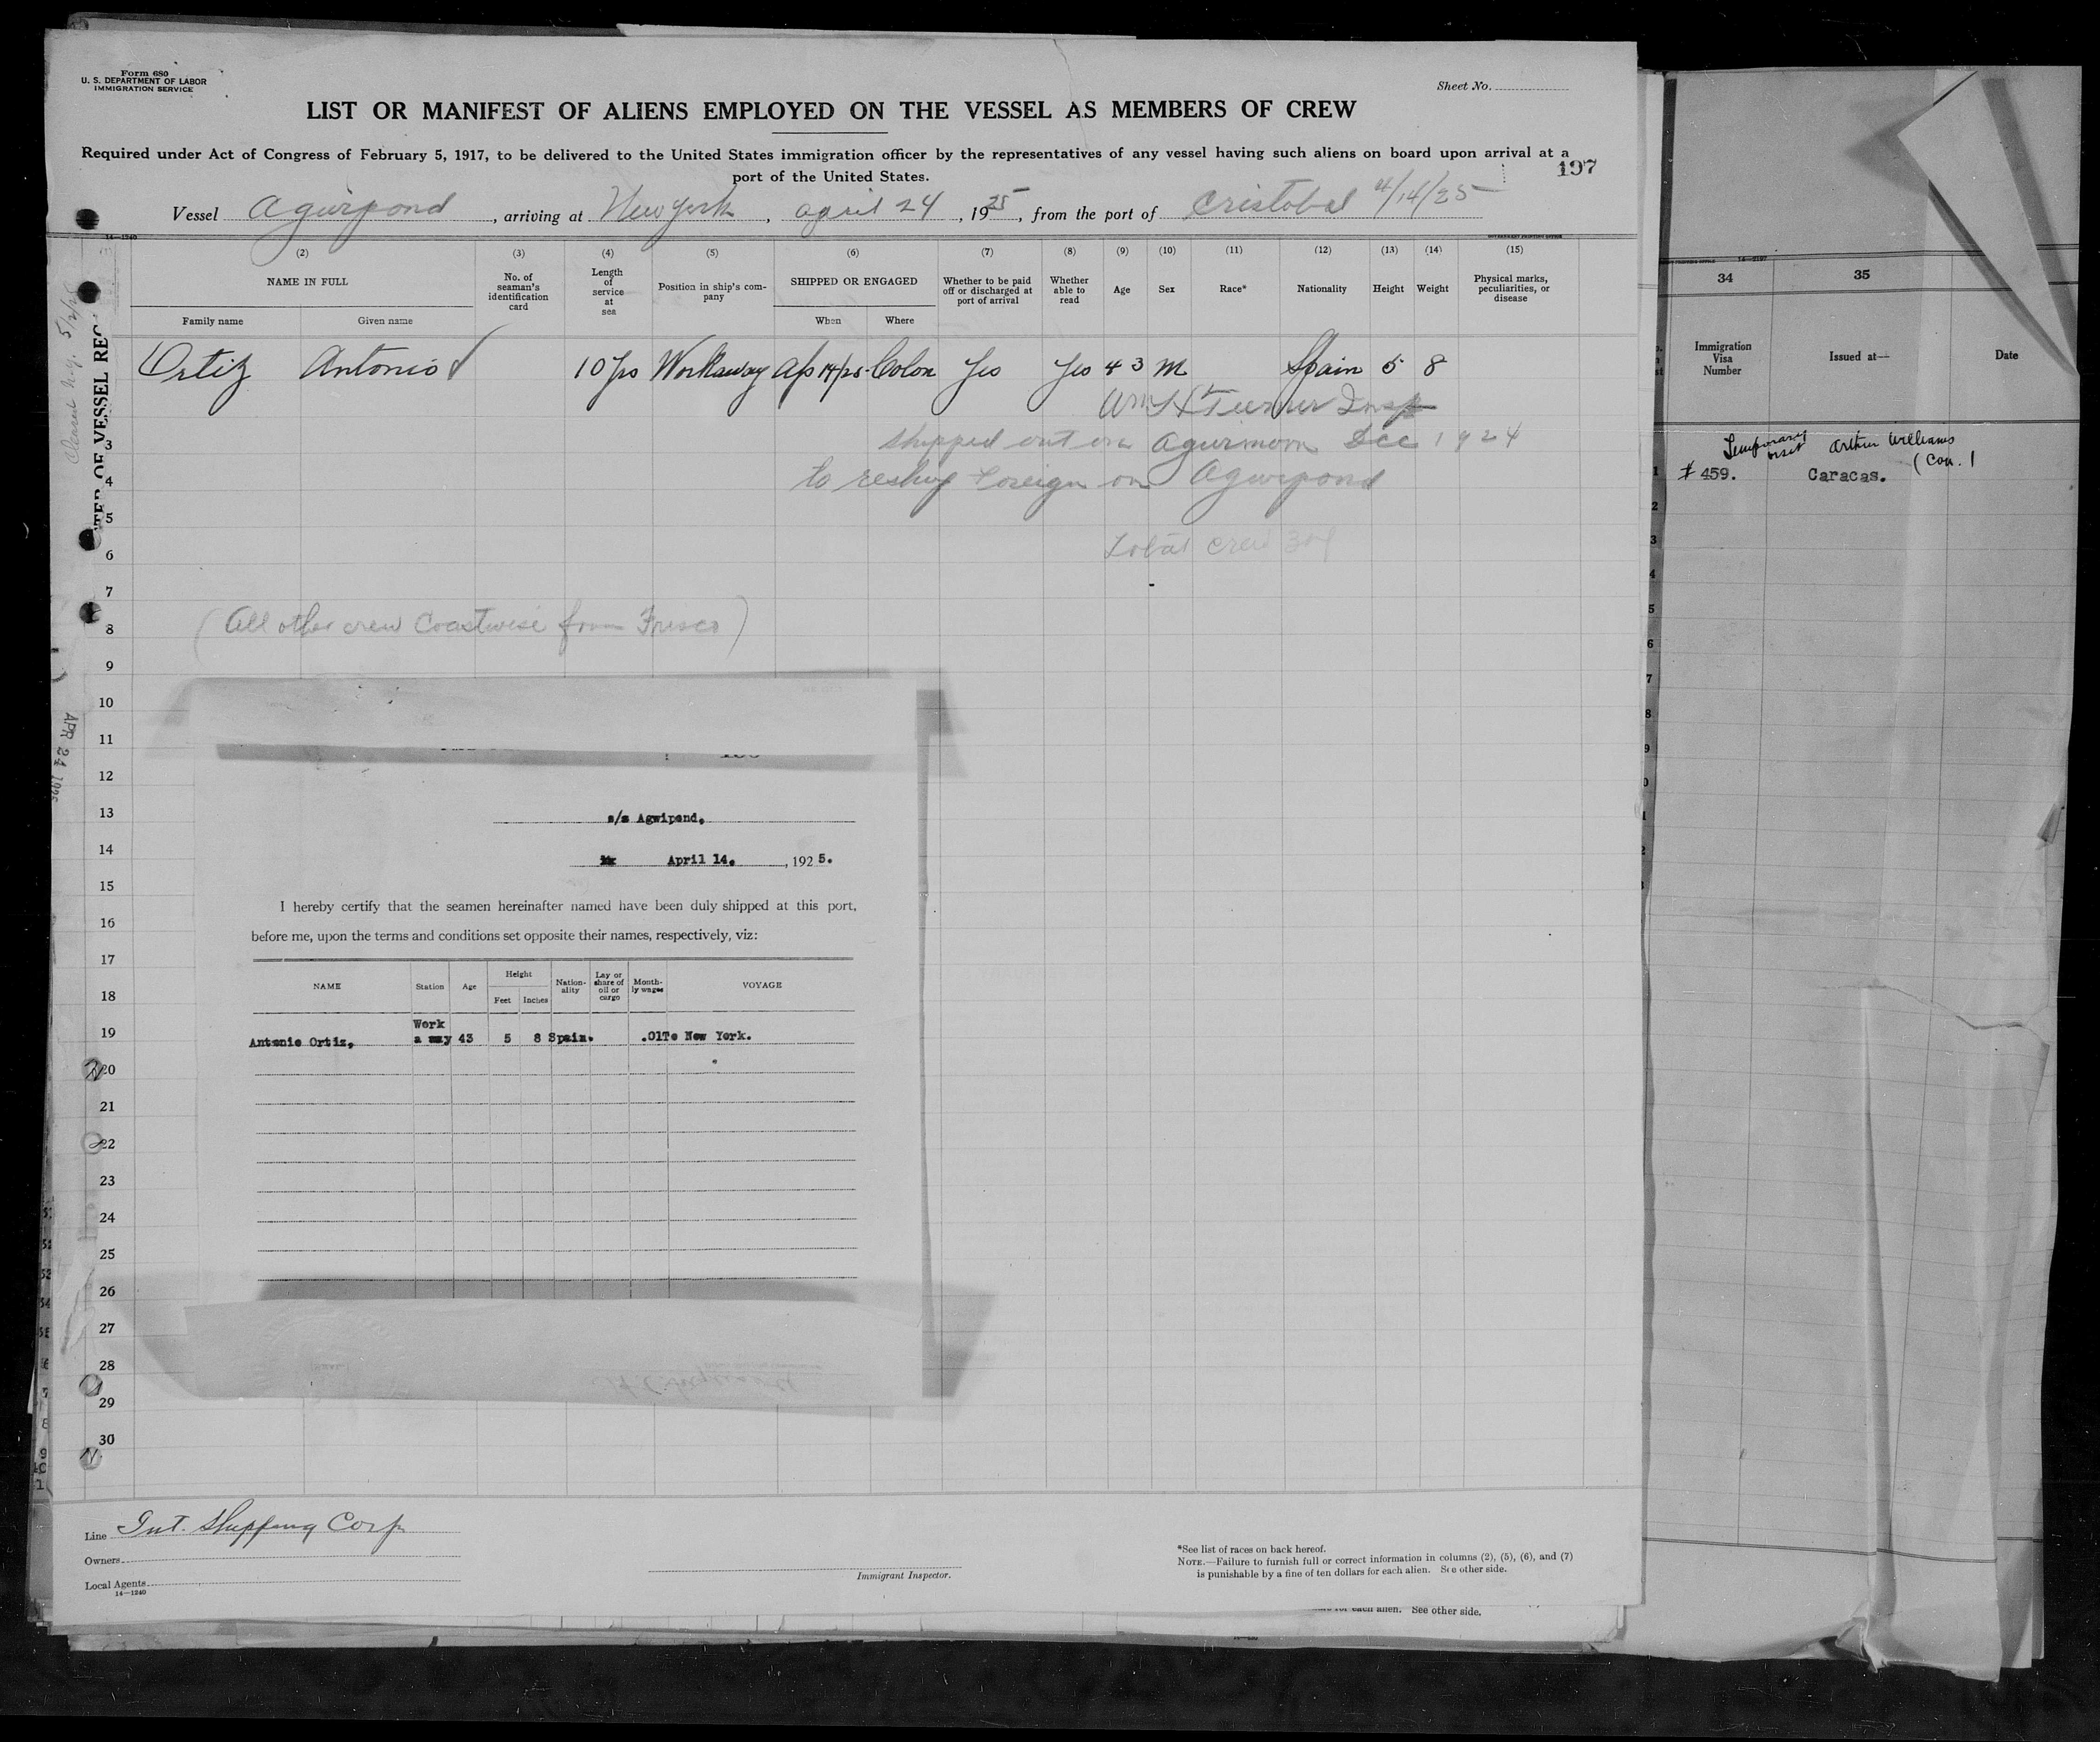 Form 680
U. S. DEPARTMENT OF LABOR
IMMIGRATION SERVICE
Sheet No.
LIST OR MANIFEST OF ALIENS EMPLOYED ON THE VESSEL AS MEMBERS OF CREW
Required under Act of Congress of February 5, 1917, to be delivered to the United States immigration officer by the representatives of any vessel having such aliens on board upon arrival at a
port of the United States.
197
Vessel Agwipond, arriving at New York, April 24, 1925, from the port of Cristobal 4/14/25
14—1240
GOVERNMENT PRINTING OFFICE
(2) (3) (4) (5) (6) (7) (8) (9) (10) (11) (12) (13) (14) (15)
NAME IN FULL No. of seaman's identification card Length of service at sea Position in ship's company SHIPPED OR ENGAGED Whether to be paid off or discharged at port of arrival Whether able to read Age Sex Race* Nationality Height Weight Physical marks, peculiarities, or disease
Family name Given name When Where
Ortiz Antonio 10 yrs Workaway Ap 14/25 Colon Yes Yes 43 M Spain 5 8
Turner Insp
3 shipped out on Agwimoon Dec 1924
4 to reship foreign on Agwipond
5
6 Total crew
7
8 (All other crew Coastwise from Frisco)
9
10
11
12
13
14
15
16
17
18
19
20
21
22
23
24
25
26
27
28
29
30
APR 24 1925
s/s Agwipond,
April 14, , 1925.
I hereby certify that the seamen hereinafter named have been duly shipped at this port,
before me, upon the terms and conditions set opposite their names, respectively, viz:
NAME Station Age Height Nationality Lay or share of oil or cargo Monthly wages VOYAGE
Feet Inches
Work
Antonio Ortiz, a way 43 5 8 Spain. .01 To New York.
Line Int. Shipping Corp
Owners
Local Agents
14—1240
Immigrant Inspector.
*See list of races on back hereof.
NOTE.—Failure to furnish full or correct information in columns (2), (5), (6), and (7)
is punishable by a fine of ten dollars for each alien. See other side.
for each alien. See other side.
34 35
Immigration Visa Number Issued at— Date
Temporary visit Arthur Williams
(Con.)
# 459. Caracas.